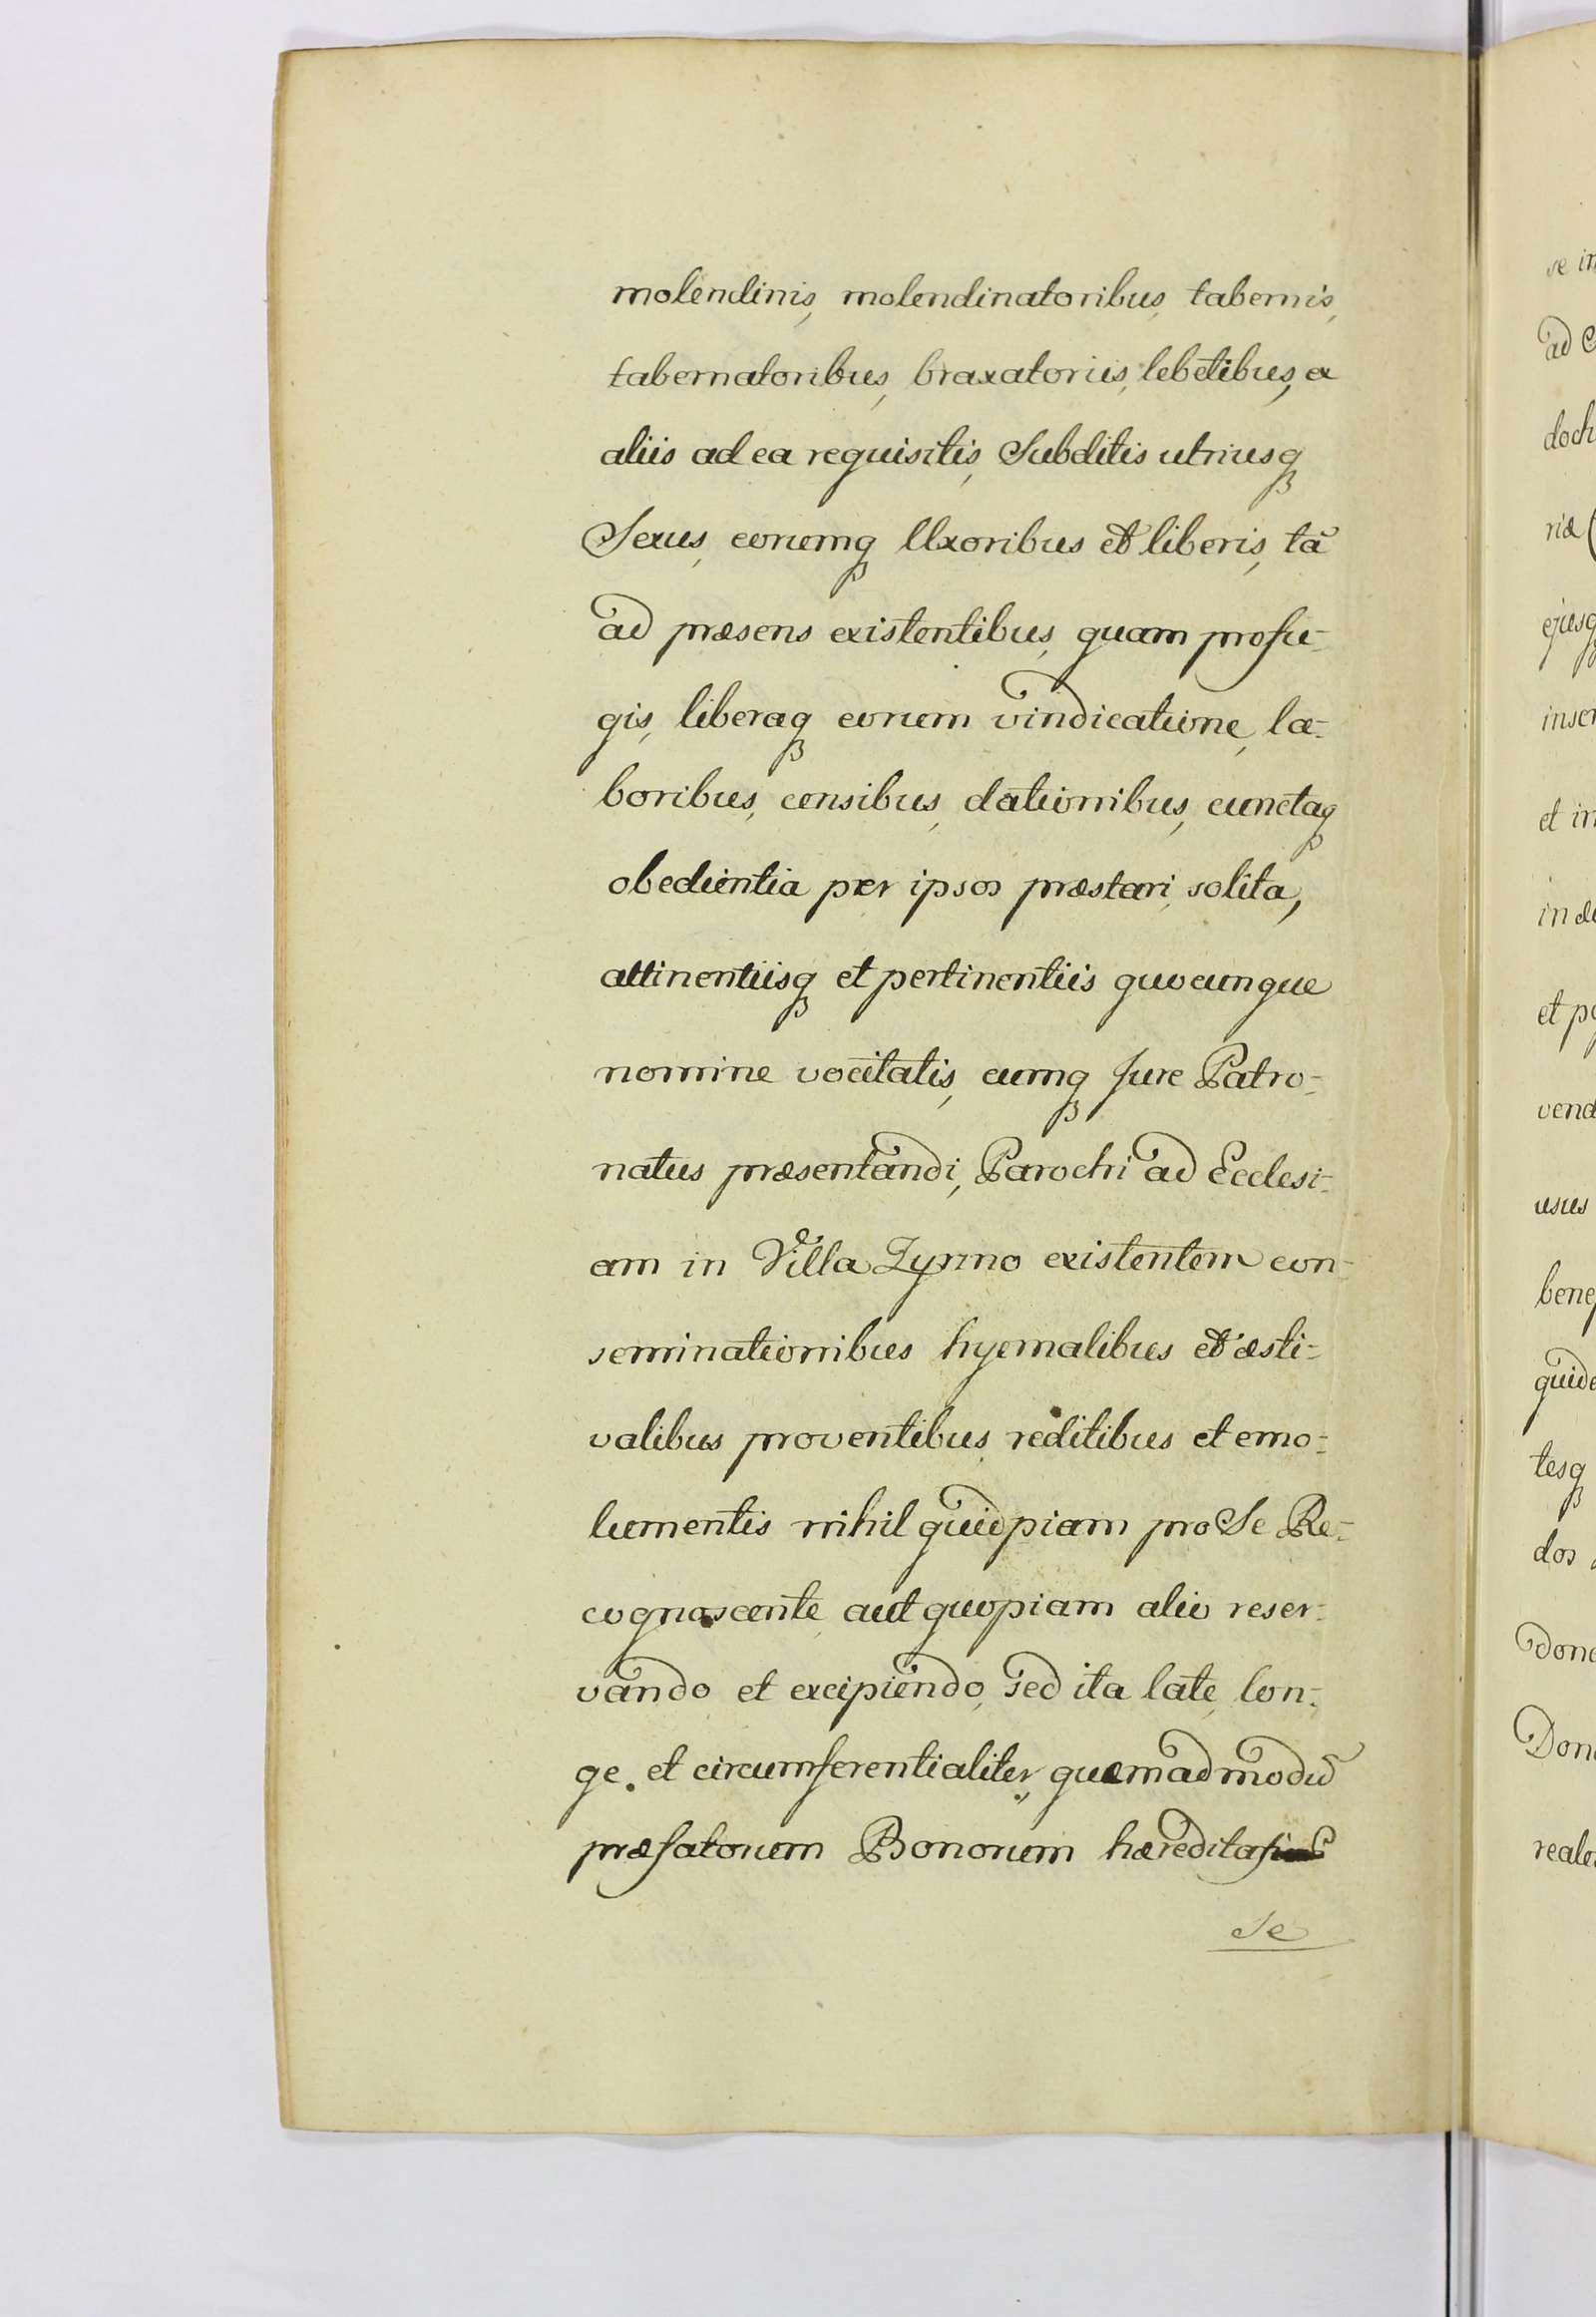 molendinis, molendinatoribus, tabernis,
tabernatoribus, braxatoriis, lebetibus, ex
aliis ad ea requisitis, Subditis utriusq
Sexus, eorumq Uxoribus et liberis, tã
ad præsens existentibus, quam profu-
gis, liberaq eorum vindicatione, la-
boribus, censibus, dationibus, cunctaq
obedientia per ipsos præstari, solita,
attinentiisq et pertinentiis quocunque
nomine vocitatis, cumq Jure Patro-
natus præsentandi, Parochi ad Ecclesi-
am in Villa Zyrmo existentem con-
seminationibus hyemalibus et æsti-
valibus proventibus, reditibus et emo-
lumentis nihil quidpiam pro Se Re-
cognoscente aut quopiam alio reser-
vando et excipiendo, sed ita late, lon-
ge. et circumferentialiter, quemadmodũ
præfatorum Bonorum hæreditas
Se
se in
ad
doch
riæ
ejusq
inser
et in
in
et
vend
usus
bene
quide
tesq
dos
dona
Dona
reale